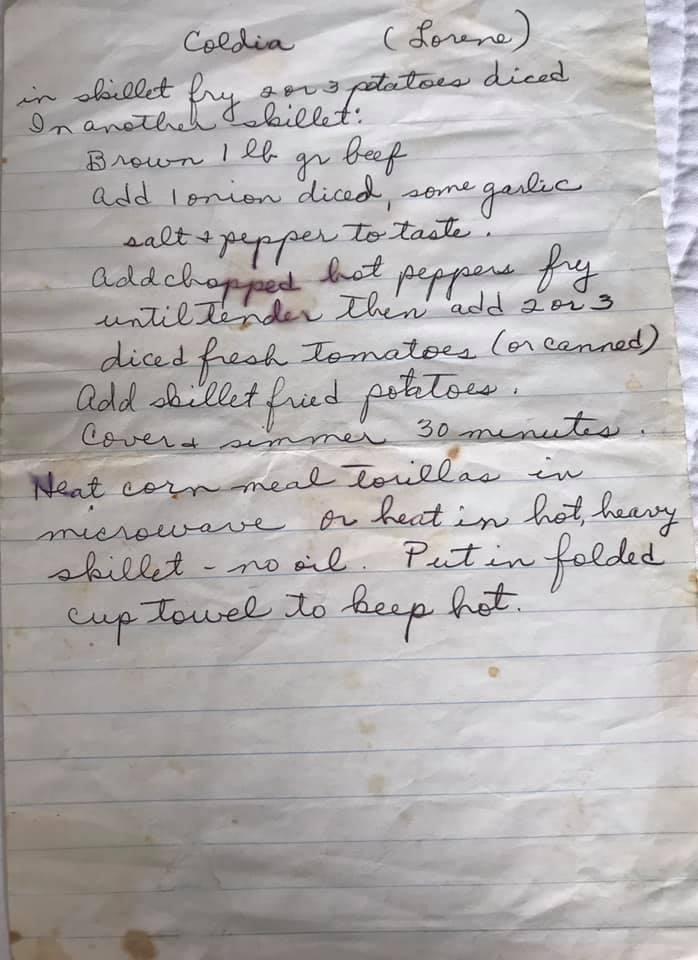 Coldia (Lorene)
in skillet fry 2 or 3 potatoes diced
In another skillet:
Brown 1 lb gr beef
add 1 onion diced, some garlic
salt & pepper to taste.
add chopped hot peppers fry
until tender then add 2 or 3
diced fresh tomatoes (or canned)
add skillet fried potatoes.
Cover & simmer 30 minutes.
Heat corn meal torillas in
microwave or heat in hot, heavy
skillet - no oil. Put in folded
cup towel to keep hot.